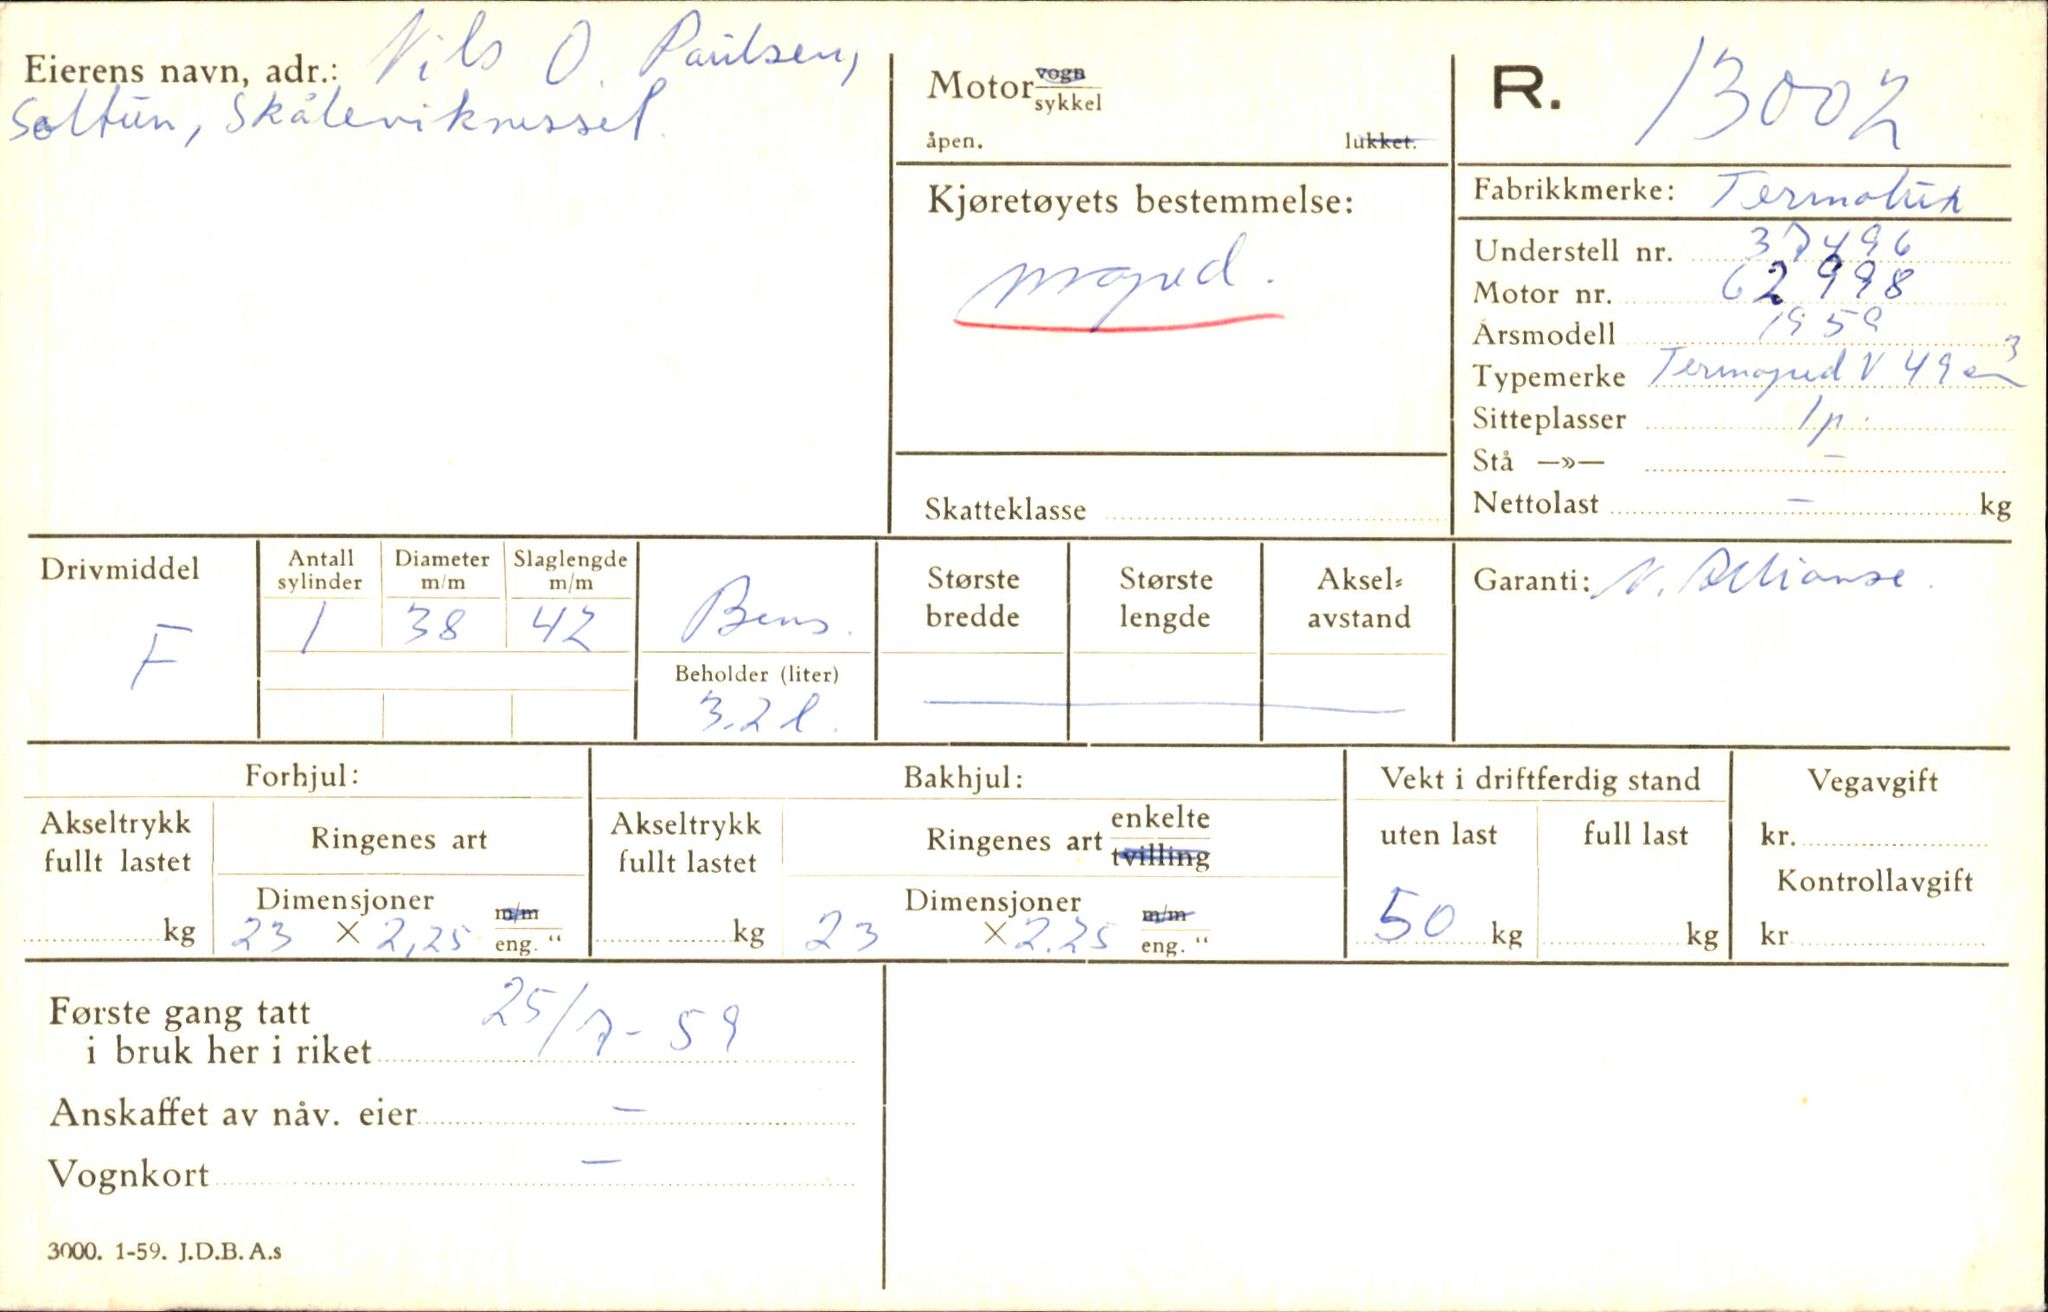 Eierens navn, adr.: Nils O. Paulsen,
Soltun, Skåleviknesset.
Motor vogn
sykkel
åpen. lukket.
R. 13002
Kjøretøyets bestemmelse:
moped.
Skatteklasse
Fabrikkmerke:
Understell nr. 37496
Motor nr. 62998
Årsmodell 1959
Typemerke Termoped V 49 cm3
Sitteplasser 1 p.
Stå —»— –
Nettolast – kg
Drivmiddel
F
Antall sylinder
1
Diameter m/m
38
Slaglengde m/m
42
Bens.
Beholder (liter)
3.2 l.
Største bredde
Største lengde
Aksel=
avstand
Garanti: N. Allianse.
Forhjul:
Akseltrykk
fullt lastet
kg
Ringenes art
Dimensjoner
23 × 2,25 m/m
eng. “
Bakhjul:
Akseltrykk
fullt lastet
kg
Ringenes art enkelte
tvilling
Dimensjoner
23 × 2.25 m/m
eng. “
Vekt i driftferdig stand
uten last
50 kg
full last
kg
Vegavgift
kr.
Kontrollavgift
kr
Første gang tatt
i bruk her i riket 25/7-59
Anskaffet av nåv. eier –
Vognkort –
3000. 1-59. J.D.B. A.s